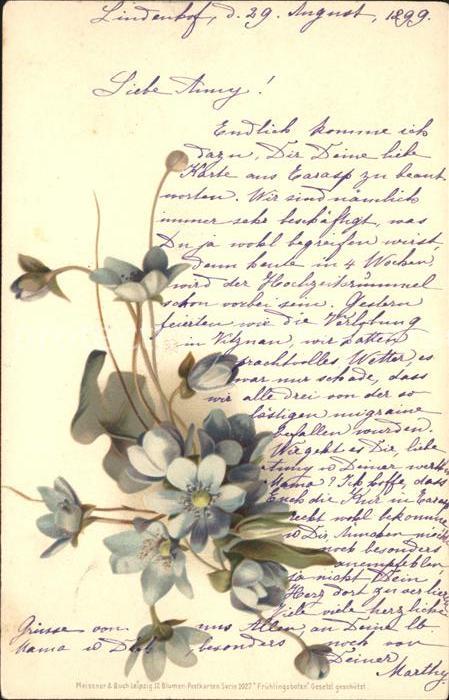 Lindenhof, d. 29. August, 1899.
Liebe Anny!
Endlich komme ich
dazu, Dir Deine liebe
Karte aus Tarasp zu beant
worten. Wir sind nämlich
immer sehr beschäftigt, was
Du ja wohl begreifen wirst,
denn heute in 4 Wochen
wird der Hochzeitsrummel
schon vorbei sein. Gestern
feierten wir die Verlobung
in Vitznau, wir hatten
prachtvolles Wetter, es
war nur schade, dass
wir alle drei von der so
lästigen migraine
befallen wurden.
Wie geht es Dir, liebe
Anny u Deiner werten
Mama? Ich hoffe, dass
Euch die Kur in Tarasp
recht wohl bekomme
u Dir,
noch besonders
anempfehlen
ja nicht Dein
Herz dort zu verlier
Viele viele herzliche
Grüsse von uns Allen an Deine lb
Mama u Dich, besonders noch von
Deiner
Marthy
Meissner & Buch Leipzig, 12 Blumen-Postkarten Serie 1027 "Frühlingsboten" Gesetzl. geschützt.